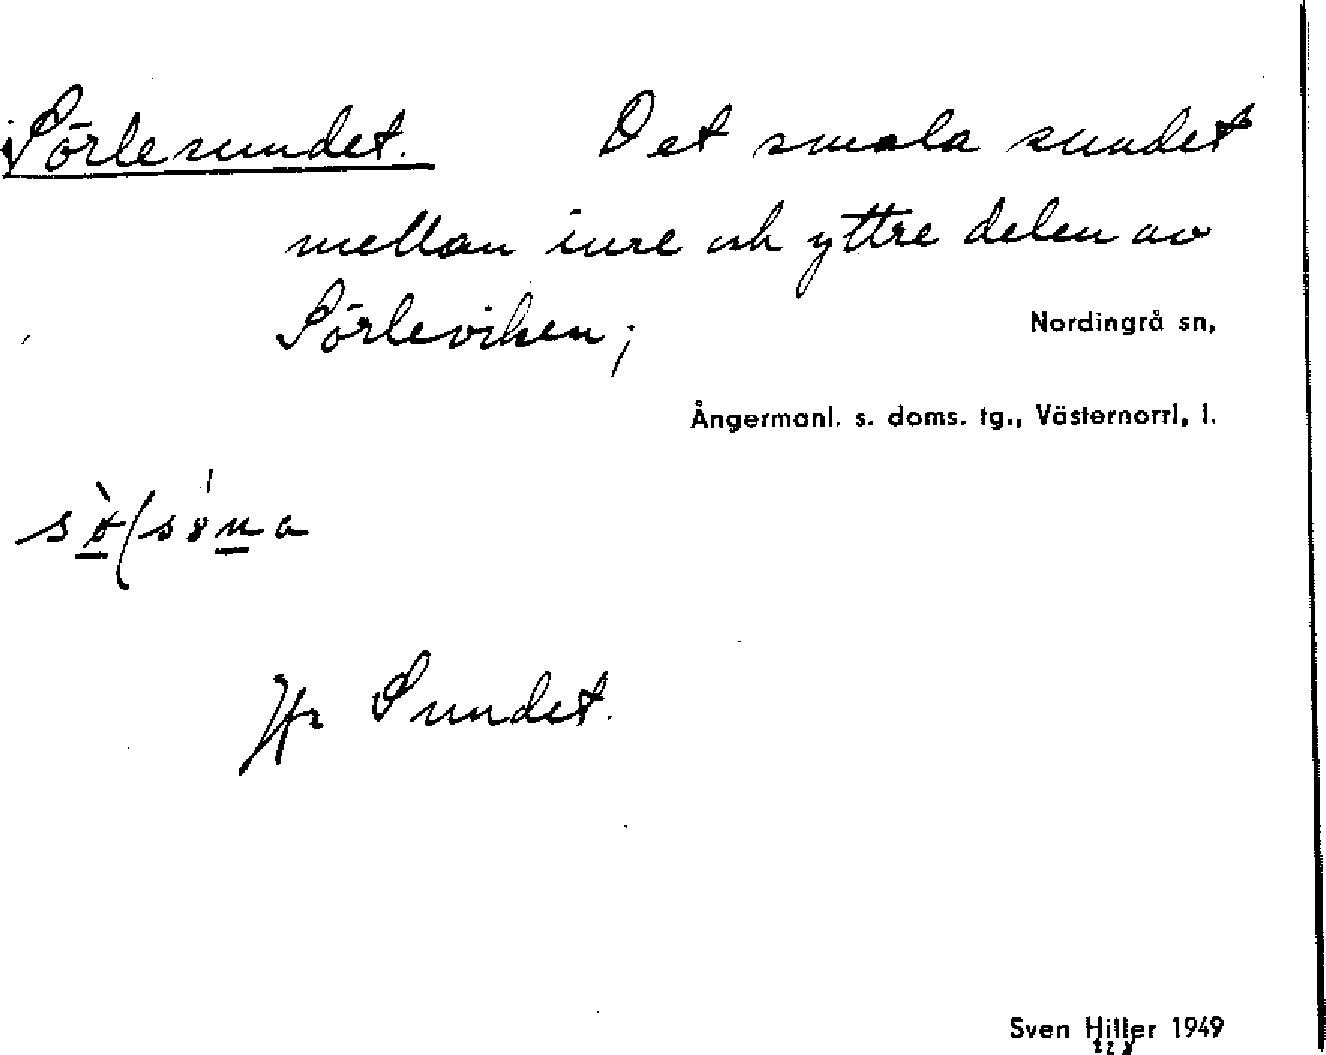 Sörlesundet. Det smala sundet
mellan inre och yttre delen av
Sörleviken;
Nordingrå sn,
Ångermanl. s. doms. tg., Västernorrl. l.
Jfr Sundet.
Sven Hiller 1949